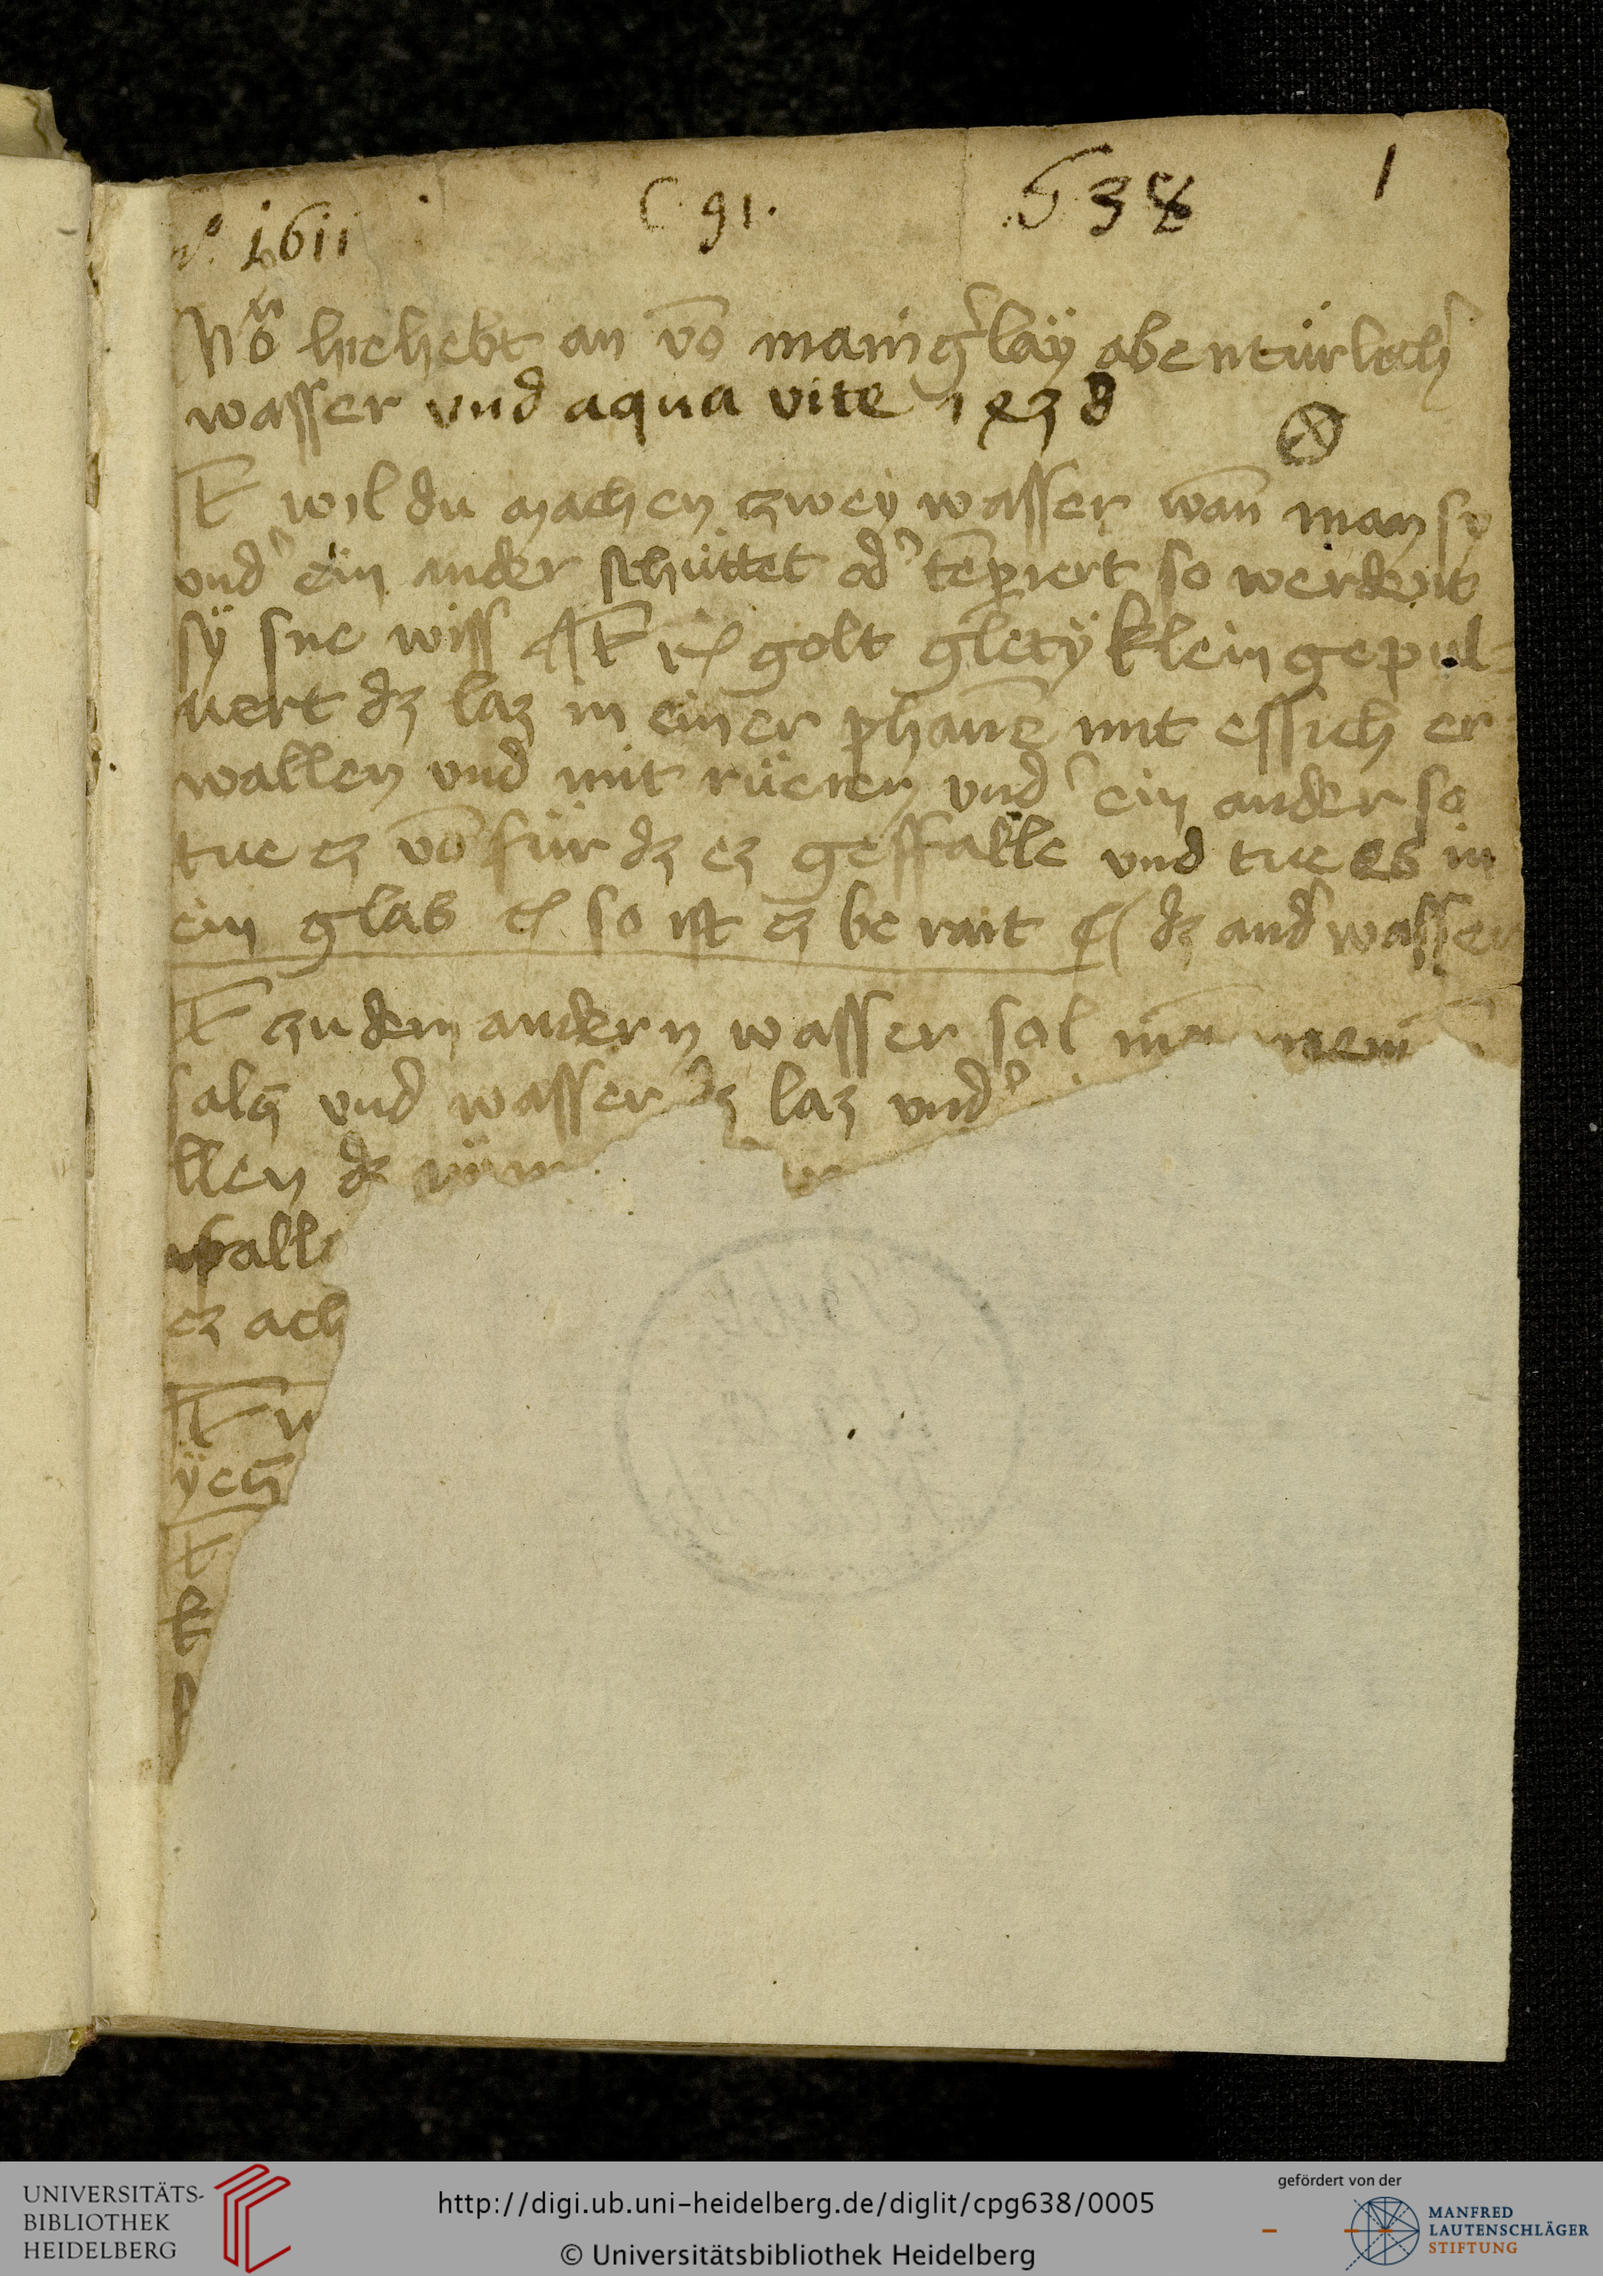 nº. 1611 C 91. 638 1
hiehebt an vō maingˀlaÿ abentürlichˀ
wasser vnd aqua vite 1438
wil du machen zwey wasser wan̄ man sy
vndˀ ein ander schüttet odˀ tēpiert so werdent
sÿ sne wiss golt gletÿ klein gepul-
uert dz laz in einer phan̄e mit essich er-
wallen vnd mit rüeren vndˀ ein ander so
tue ez vō für dz ez geffalle vnd tue es in
ein glas so ist ez be rait dz andˀ wasser
zu dem andern wasser sol nem
salcz vnd wasser dz laz vndˀ
llen dz
wall
ez ach
k
UNIVERSITÄTS-
BIBLIOTHEK
HEIDELBERG
http://digi.ub.uni-heidelberg.de/diglit/cpg638/0005
© Universitätsbibliothek Heidelberg
gefördert von der
MANFRED
LAUTENSCHLÄGER
STIFTUNG